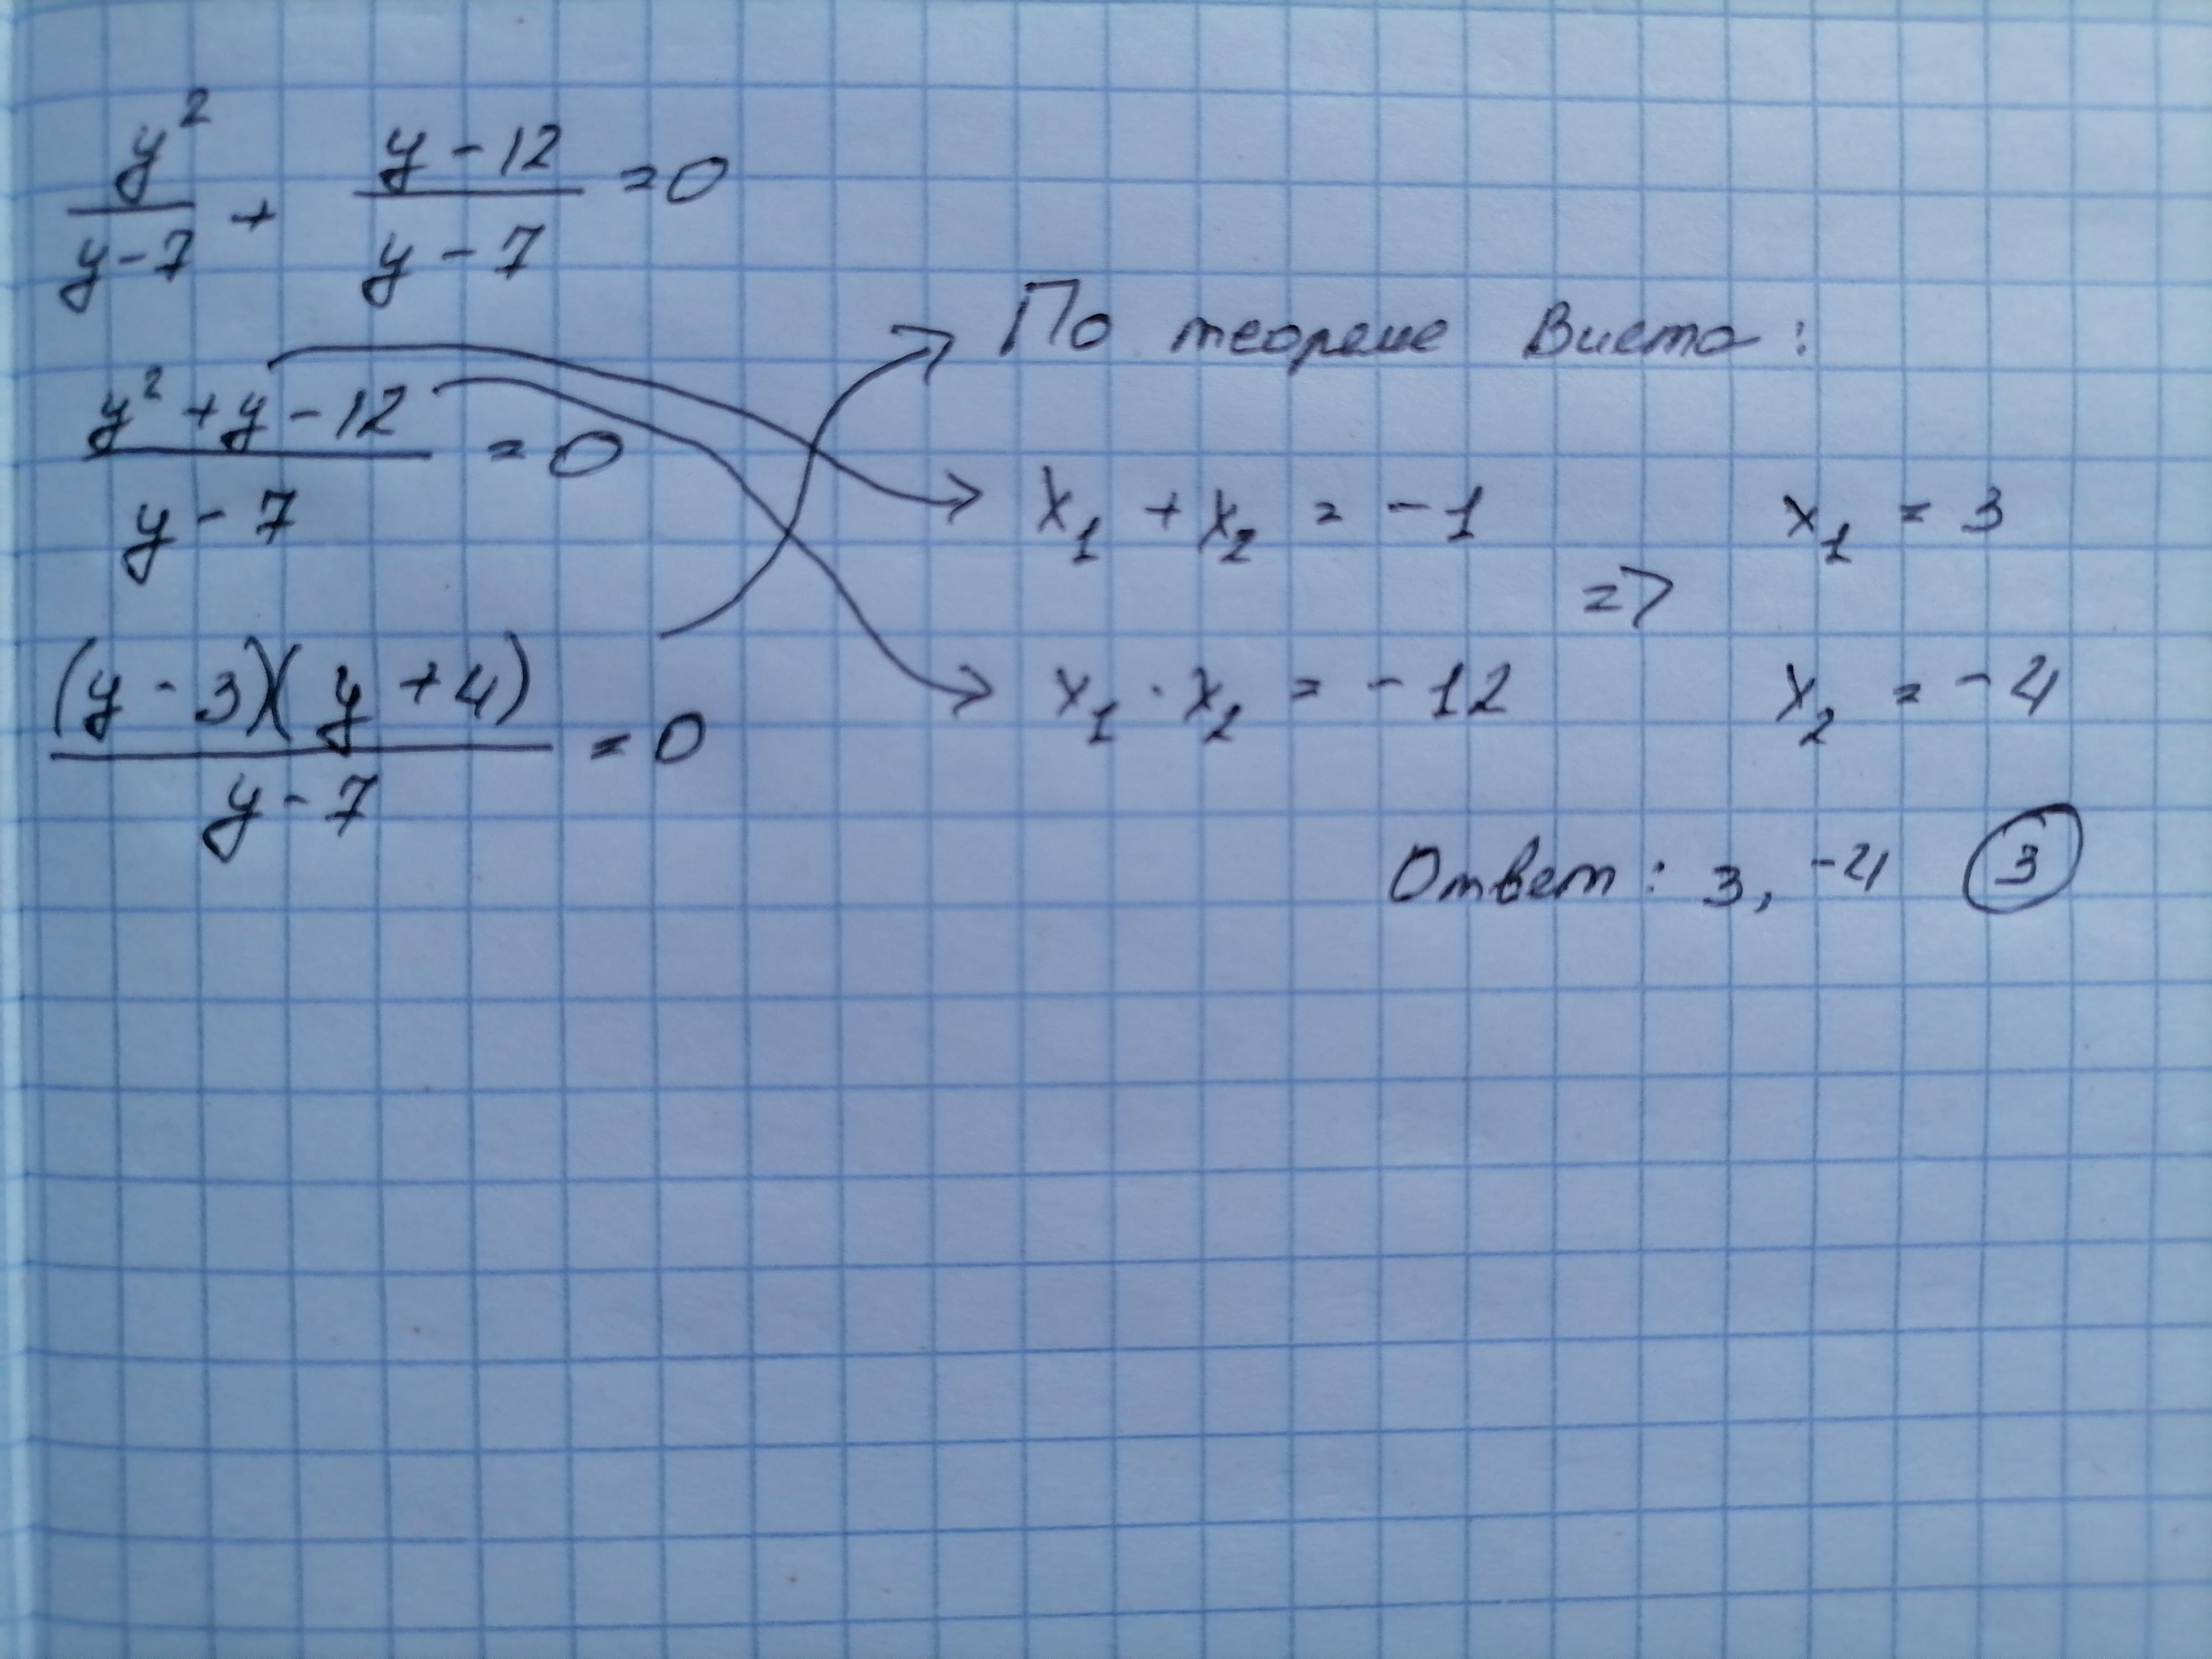 y²/(y-7) + (y-12)/(y-7) =0
(y²+y-12)/(y-7) =0
(y-3)(y+4)/(y-7) =0
По теореме Виета:
x₁ + x₂ = -1
x₁ · x₂ = -12
=>
x₁ = 3
x₂ = -4
Ответ: 3, -4
3